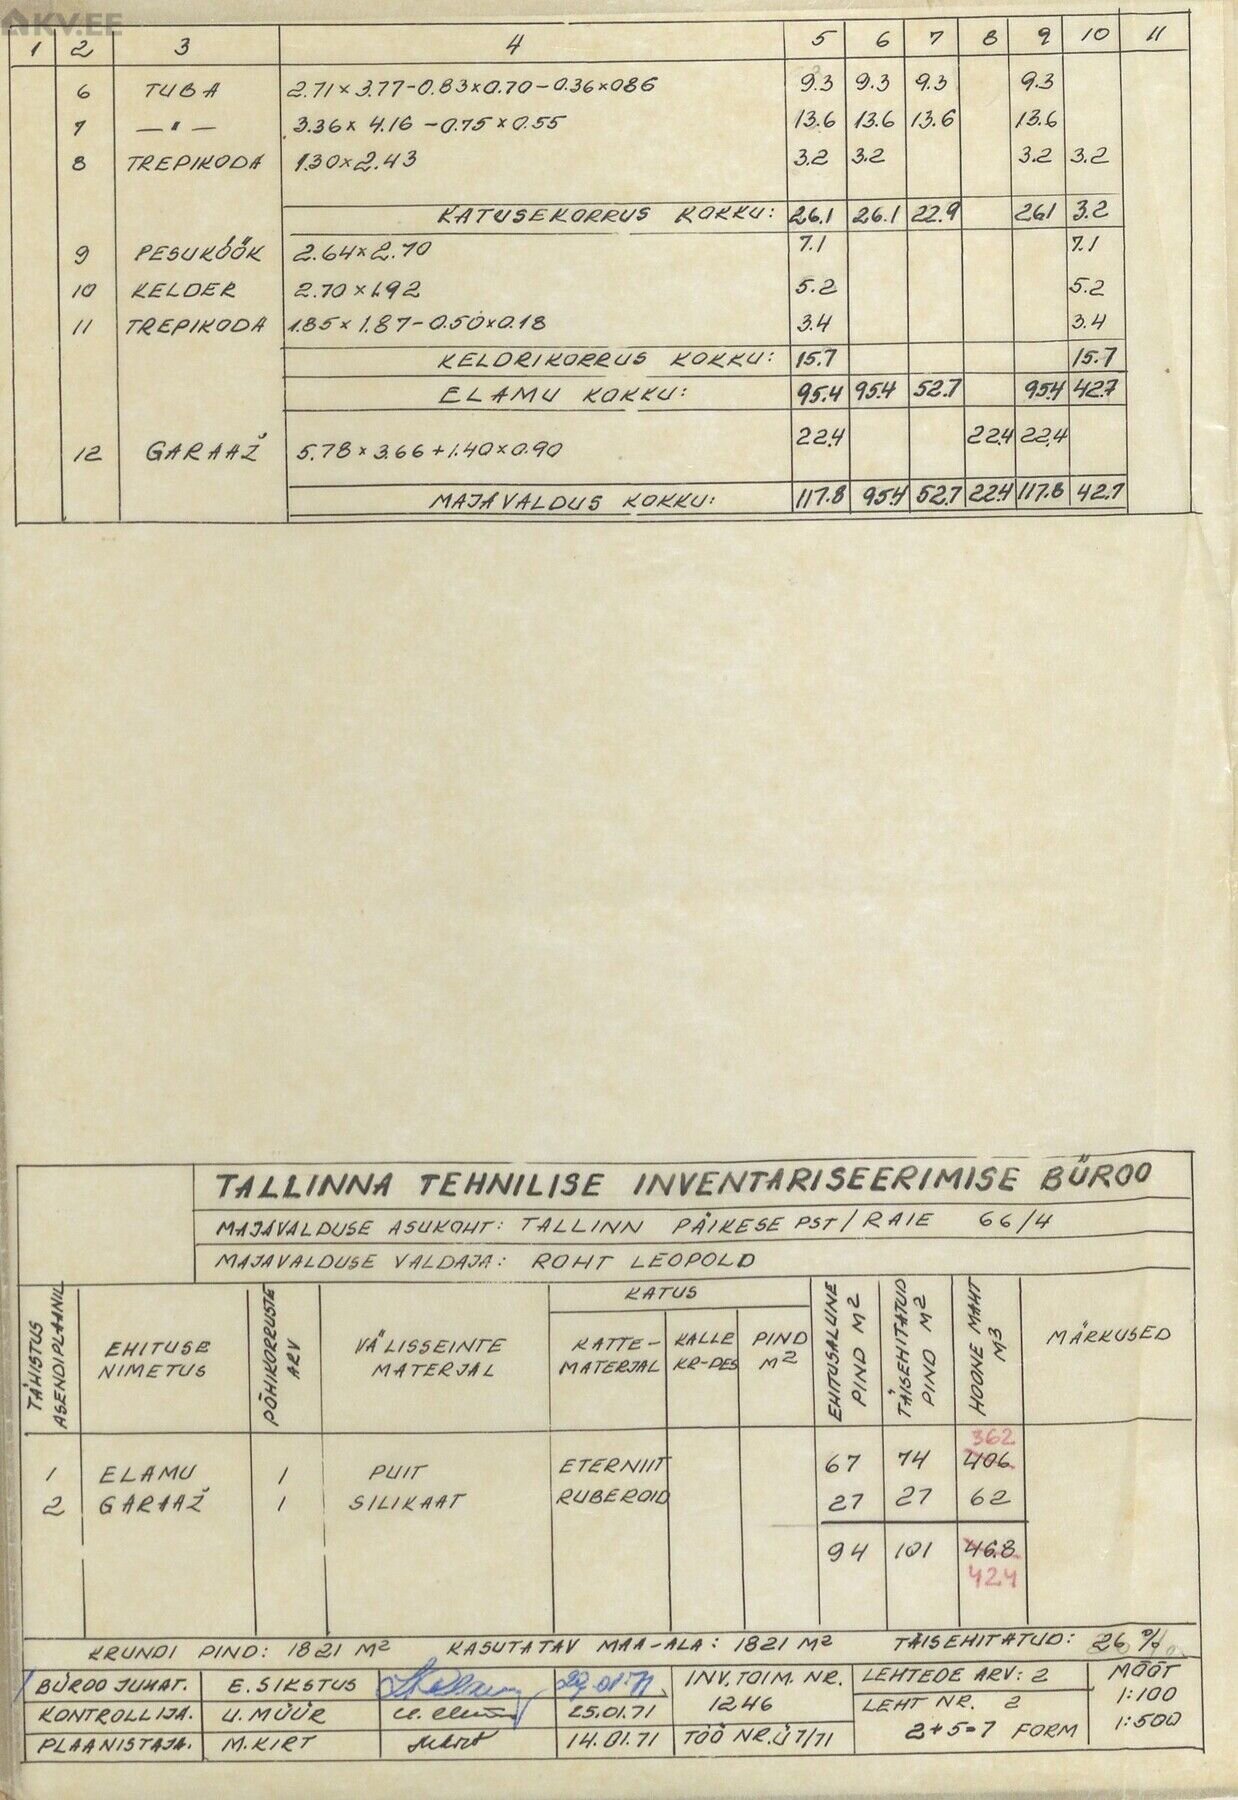 KV.EE
1 2 3 4 5 6 7 8 9 10 11
6 TUBA 2.71×3.77-0.83×0.70-0.36×086 9.3 9.3 9.3 9.3
7 —"— 3.36×4.16-0.75×0.55 13.6 13.6 13.6 13.6
8 TREPIKODA 1.30×2.43 3.2 3.2 3.2 3.2
KATUSEKORRUS KOKKU: 26.1 26.1 22.9 26.1 3.2
9 PESUKÖÖK 2.64×2.70 7.1 7.1
10 KELDER 2.70×1.92 5.2 5.2
11 TREPIKODA 1.85×1.87-0.50×0.18 3.4 3.4
KELDRIKORRUS KOKKU: 15.7 15.7
ELAMU KOKKU: 95.4 95.4 52.7 95.4 42.7
12 GARAAŽ 5.78×3.66+1.40×0.90 22.4 22.4 22.4
MAJAVALDUS KOKKU: 117.8 95.4 52.7 22.4 117.8 42.7
TALLINNA TEHNILISE INVENTARISEERIMISE BÜROO
MAJAVALDUSE ASUKOHT: TALLINN PÄIKESE PST/RAIE 66/4
MAJAVALDUSE VALDAJA: ROHT LEOPOLD
TÄHISTUS ASENDIPLAANIL
EHITUSE NIMETUS
PÕHIKORRUSTE ARV
VÄLISSEINTE MATERJAL
KATUS
KATTE-MATERJAL
KALLE KR-DES
PIND M2
EHITUSALUNE PIND M2
TÄISEHITATUD PIND M2
HOONE MAHT M3
MÄRKUSED
362
1 ELAMU 1 PUIT ETERNIIT 67 74 406
2 GARAAŽ 1 SILIKAAT RUBEROID 27 27 62
94 101 468
424
KRUNDI PIND: 1821 M2 KASUTATAV MAA-ALA: 1821 M2 TÄISEHITATUD: 26 %
BÜROO JUHAT. E. SIKSTUS 29.01.71 INV. TOIM. NR. LEHTEDE ARV: 2 MÕÕT
KONTROLLIJA. U. MÜÜR 25.01.71 1246 LEHT NR. 2 1:100
PLAANISTAJA. M. KIRT 14.01.71 TÖÖ NR. Ü 7/71 2+5=7 FORM 1:500